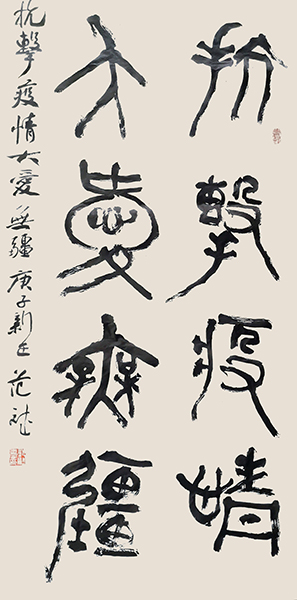 抗擊疫情
大愛無疆
抗擊疫情大愛無疆庚子新正范